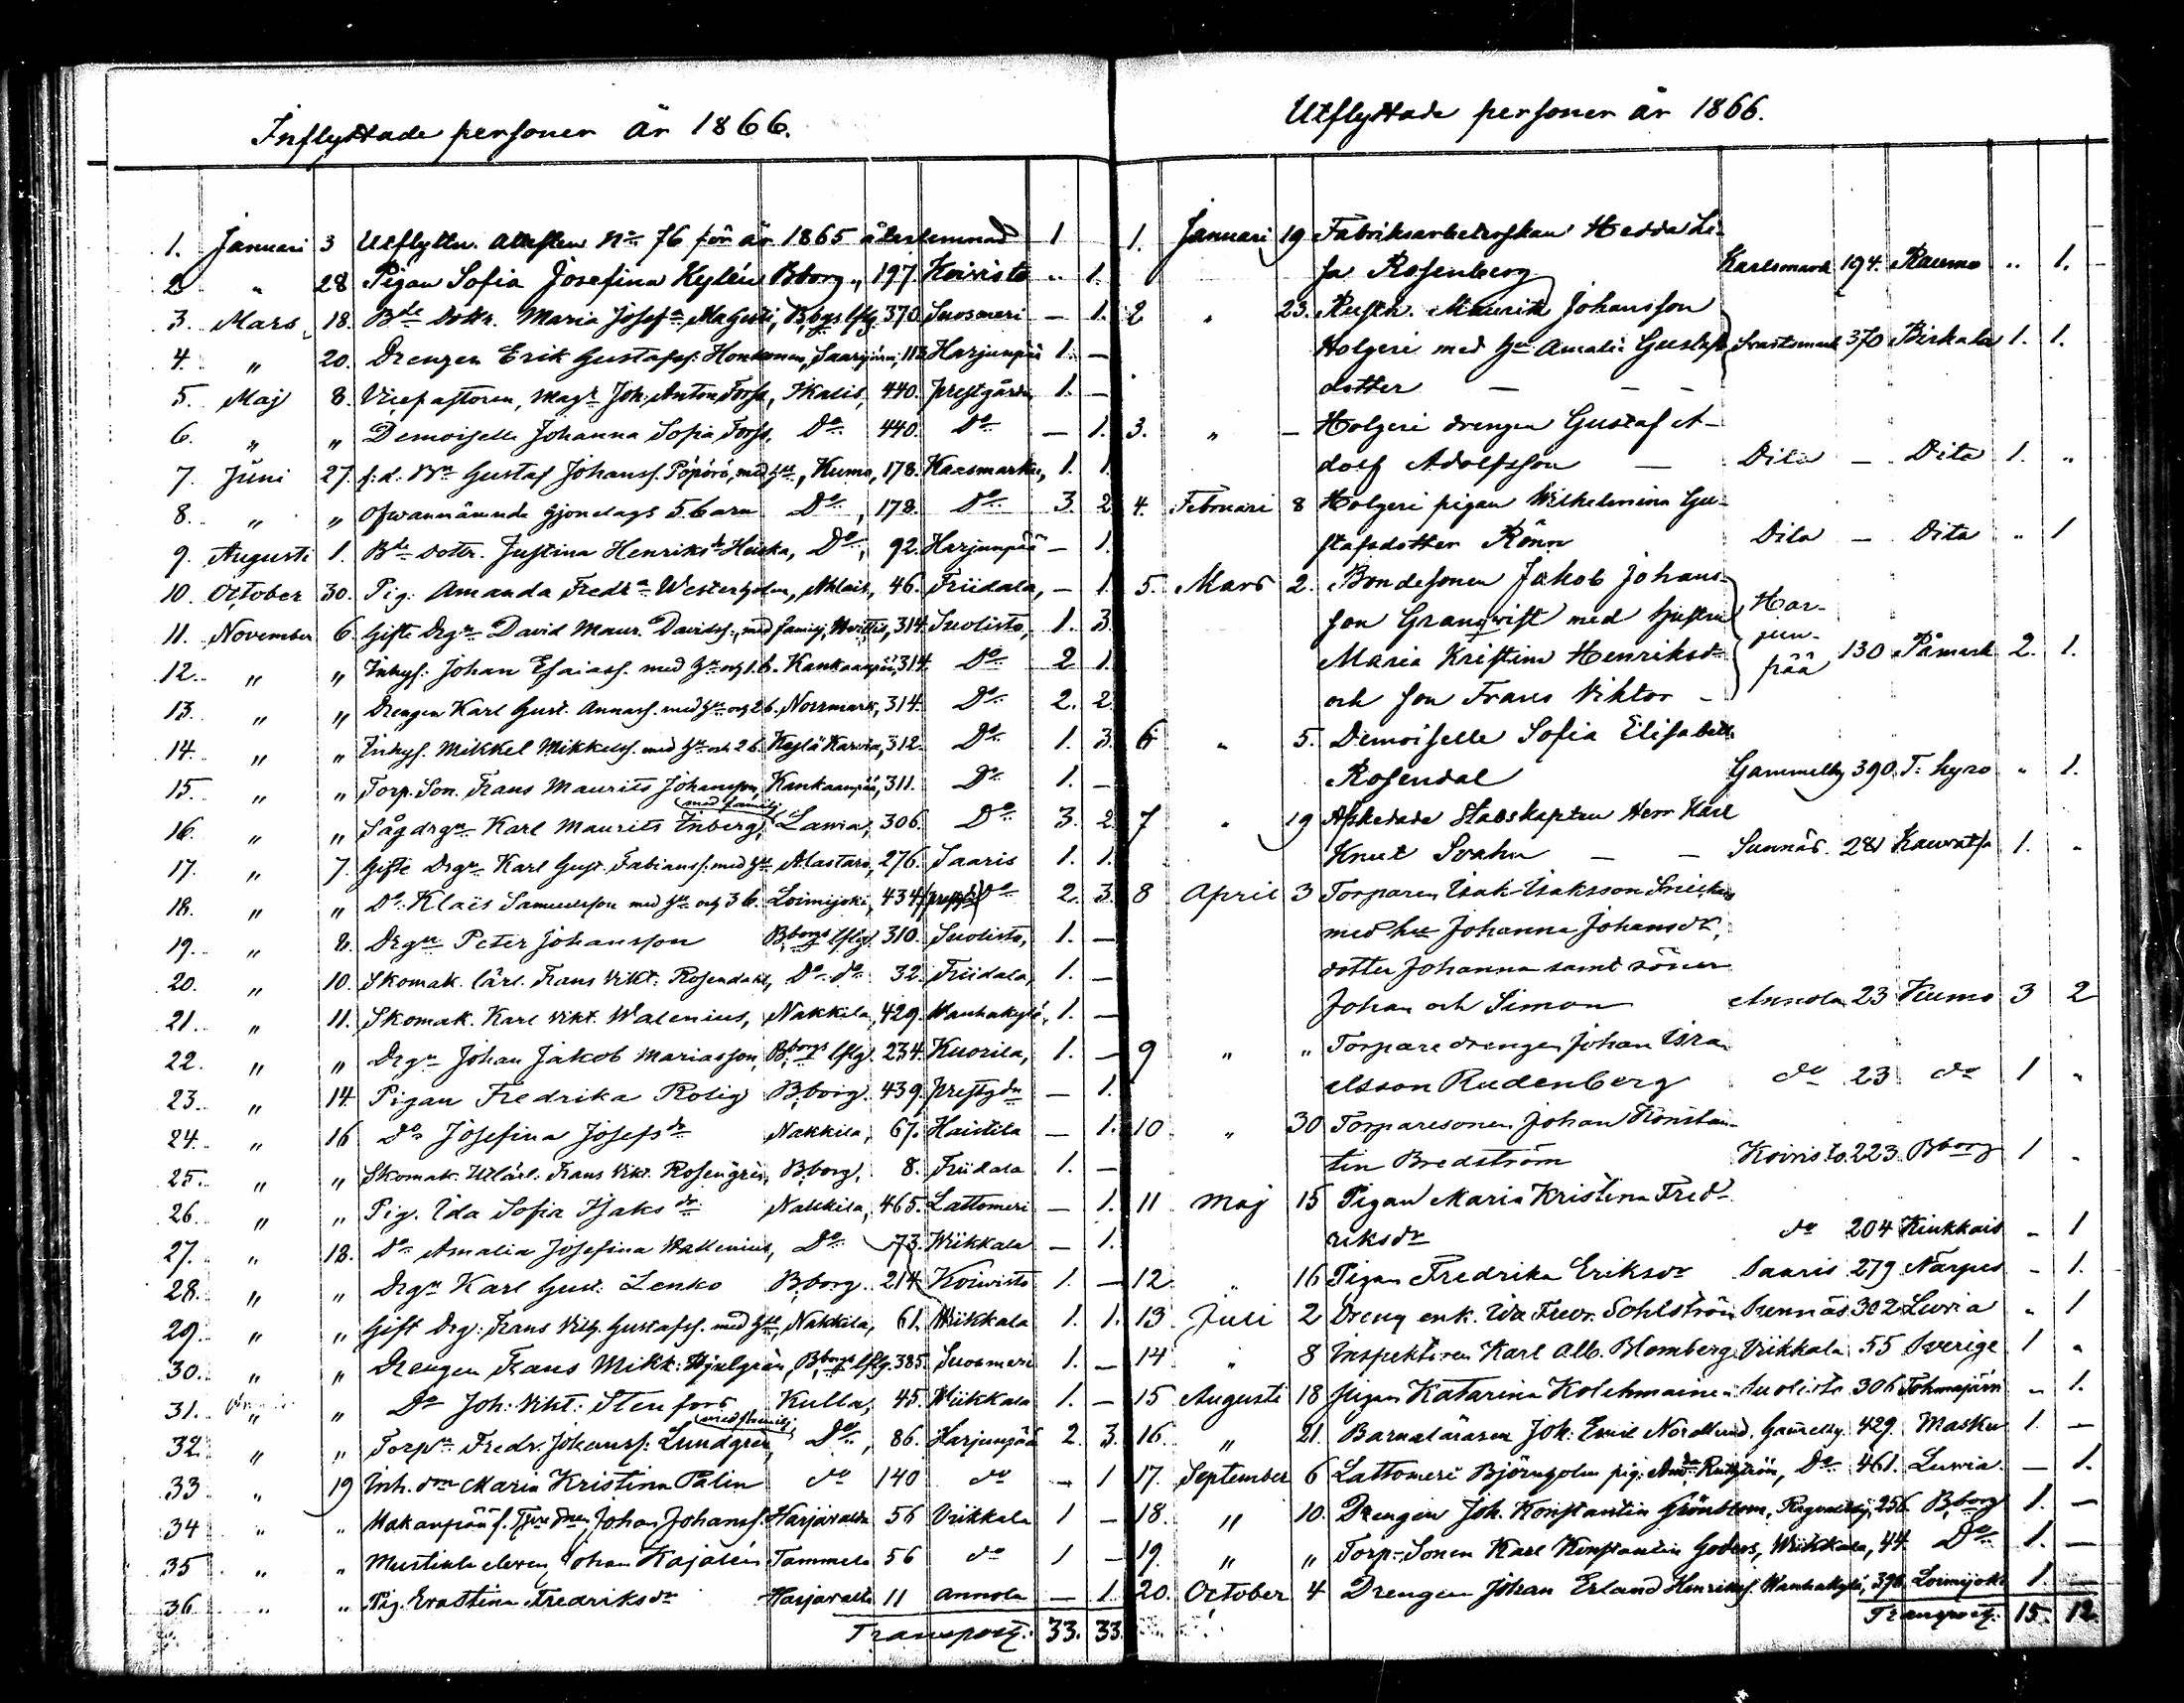 Inflyttade personer år 1866.
1. Januari 3 Utflyttn. attesten No 76 för år 1865 återlemnad 1
2 " 28 Pigan Sofia Josefina Hylén Bborg, 197. Koivisto .. 1.
3. Mars 18. Bde dottr. Maria Josefa Bborgs lfg. 370. Suosmeri — 1.
4. " 20. Drengen Erik Gustafss. Honkonen, 113 Harjunpää 1. —
5. Maj 8. Vicepastoren, Magr. Joh. Anton Forss, Ikalis, 440. prestgården 1. —
6. " " Demoiselle Johanna Sofia Forss, Do 440. Do — 1.
7. Juni 27. f.d. Bn Gustaf Johanss. Pöpörö, med Hu, Kumo, 178. Kaasmarku, 1. 1.
8. " " Ofvannämnde hjonelags 5 barn Do, 178. Do 3. 2
9. Augusti 1. Bde dotr. Justina Henriksdr Heiska, Do, 92. Harjunpää — 1.
10. October 30. Pig. Amanda Fredra Westerholm, Ahlais, 46. Friidala, — 1.
11. November 6. Gifte Drgn David Maur. Davidss., med familj, 314. Suolisto, 1. 3.
12. " " Inhys. Johan Esaiass. med Hu och 1 b. Kankaanpää, 314. Do 2 1.
13. " " Drengen Karl Gust. Annass. med Hu och 2 b. Norrmark, 314. Do 2. 2
14. " " Inhys. Mikkel Mikkelss. med Hu och 2 b. Karvia, 312. Do 1. 3.
15. " " Torp. Son. Frans Maurits Johansson, Kankaanpää, 311. Do 1. —
16. " " Sågdrgn Karl Maurits Inberg, med familj Lavia, 306. Do 3. 2
17. " 7. Gifte Drgn Karl Gust. Fabianss. med Hu Alastaro, 276. Saaris 1. 1.
18. " " Do Klaës Samuelsson med Hu och 3 b. Loimijoki, 434. Do 2. 3.
19. " 8. Drgn Peter Johansson Bborgs lfg. 310. Suolisto, 1. —
20. " 10. Skomak. lärl. Frans Vikt. Rosendahl, Do do 32. Friidala, 1. —
21. " 11. Skomak. Karl Vikt. Walenius, Nakkila, 429. Wanhakylä, 1. —
22. " " Drgn Johan Jakob Mariasson, Bborgs lfg. 234. Kuorila, 1. —
23. " 14. Pigan Fredrika Rolig Bborg. 439. prestgdn — 1.
24. " 16 Do Josefina Josefsdr Nakkila, 67. Haistila — 1.
25. " " Skomak. Utlärl. Frans Vikt. Rosengrén, Bborg, 8. Friidala 1. —
26. " " Pig. Ida Sofia Isaksdr Nakkila, 465. Lattomeri — 1.
27. " 18. Do Amalia Josefina Wallenius, Do 73. Wiikkala — 1.
28. " " Drgn Karl Gust. Lenko Bborg. 214. Koivisto 1. —
29. " " Gift Drg. Frans Vilh. Gustafss. med Hu, Nakkila, 61. Wiikkala 1. 1.
30. " " Drengen Frans Mikk. Hjulgrén, Bborgs lfg. 385. Suosmeri 1. —
31. " " Do Joh. Vikt. Stenfors Kulla, 45. Wiikkala 1. —
32. " " Torpn Fredr. Johanss. Lundgren, med familj Do, 86. Harjunpää 2. 3.
33 " 19 Inh. drn Maria Kristina Palin do 140 do — 1
34 " " Johan Johanss. Harjavalta 56 Viikkala 1 —
35 " " Mustiala eleven Johan Kajalén Tammela 56 do 1 —
36 " " Pig. Eva Stina Fredriksdr Harjavalta 11 Annola — 1.
Transport. 33. 33.
Utflyttade personer år 1866.
1. Januari 19 Fabriksarbeterskan Hedda Li-
sa Rosenberg Karlsmark 194. Raumo .. 1.
2 " 23. Rusth. Maurits Johansson
Holgeri med Hu Amalia Gustafs- Svartsmark 370 Birkala 1. 1.
dotter — — —
3. " — Holgeri drengen Gustaf A-
dolf Adolfsson — Dito — Dito 1. "
4. Februari 8 Holgeri pigan Wilhelmina Gu-
stafsdotter Rönn Dito — Dito " 1
5. Mars 2. Bondesonen Jakob Johans-
son Granqwist med hustru Har-
Maria Kristina Henriksdr jun- 130 Påmark 2. 1.
och son Frans Viktor — pää
6 " 5. Demoiselle Sofia Elisabeth
Rosendal Gammelby 390. T: kyro " 1.
7 " 19 Afskedade Stabskapten Herr Karl
Knut Svahn — — Sunnäs. 281 Kauvatsa 1. "
8 April 3 Torparen Isak Isaksson
med hu Johanna Johansdr,
dotter Johanna samt söner
Johan och Simon Annola 23 Kumo 3 2
9 " " Torpare drengen Johan Isra-
elsson Rudenberg do 23 do 1 "
10 " 30 Torparesonen Johan Konstan-
tin Bredström Koivisto. 223. Bborg 1 "
11 Maj 15 Pigan Maria Kristina Fred-
riksdr do 204 Kiukkais " 1
12 " 16 Pigan Fredrika Eriksdr Saaris 279 Närpes " 1.
13 Juli 2 Dreng enk. Ida Fredr. Sohlström Sunnäs 302 Luvia " 1
14 " 8 Inspektoren Karl Alb. Blomberg Viikkala 55 Sverige 1 "
15 Augusti 18 Pigan Katarina Kolehmainen Suolisto 306 Tohmajärvi " 1.
16. " 21. Barnaläraren Joh. Emil Nordlund, Gammelby. 429. Masku 1. —
17. September 6 Lattomeri Björnholm pig. Do 461. Luvia. — 1.
18. " 10. Drengen Joh. Konstantin Grönblom, 256. Bborg 1. —
19. " " Torp. Sonen Karl Konstantin Goders, Wiikkala, 44. Do 1. —
20. October 4 Drengen Johan Erland Henrikss. Wanhakylä, 398. Loimijoki 1. —
Transport. 15. 12.